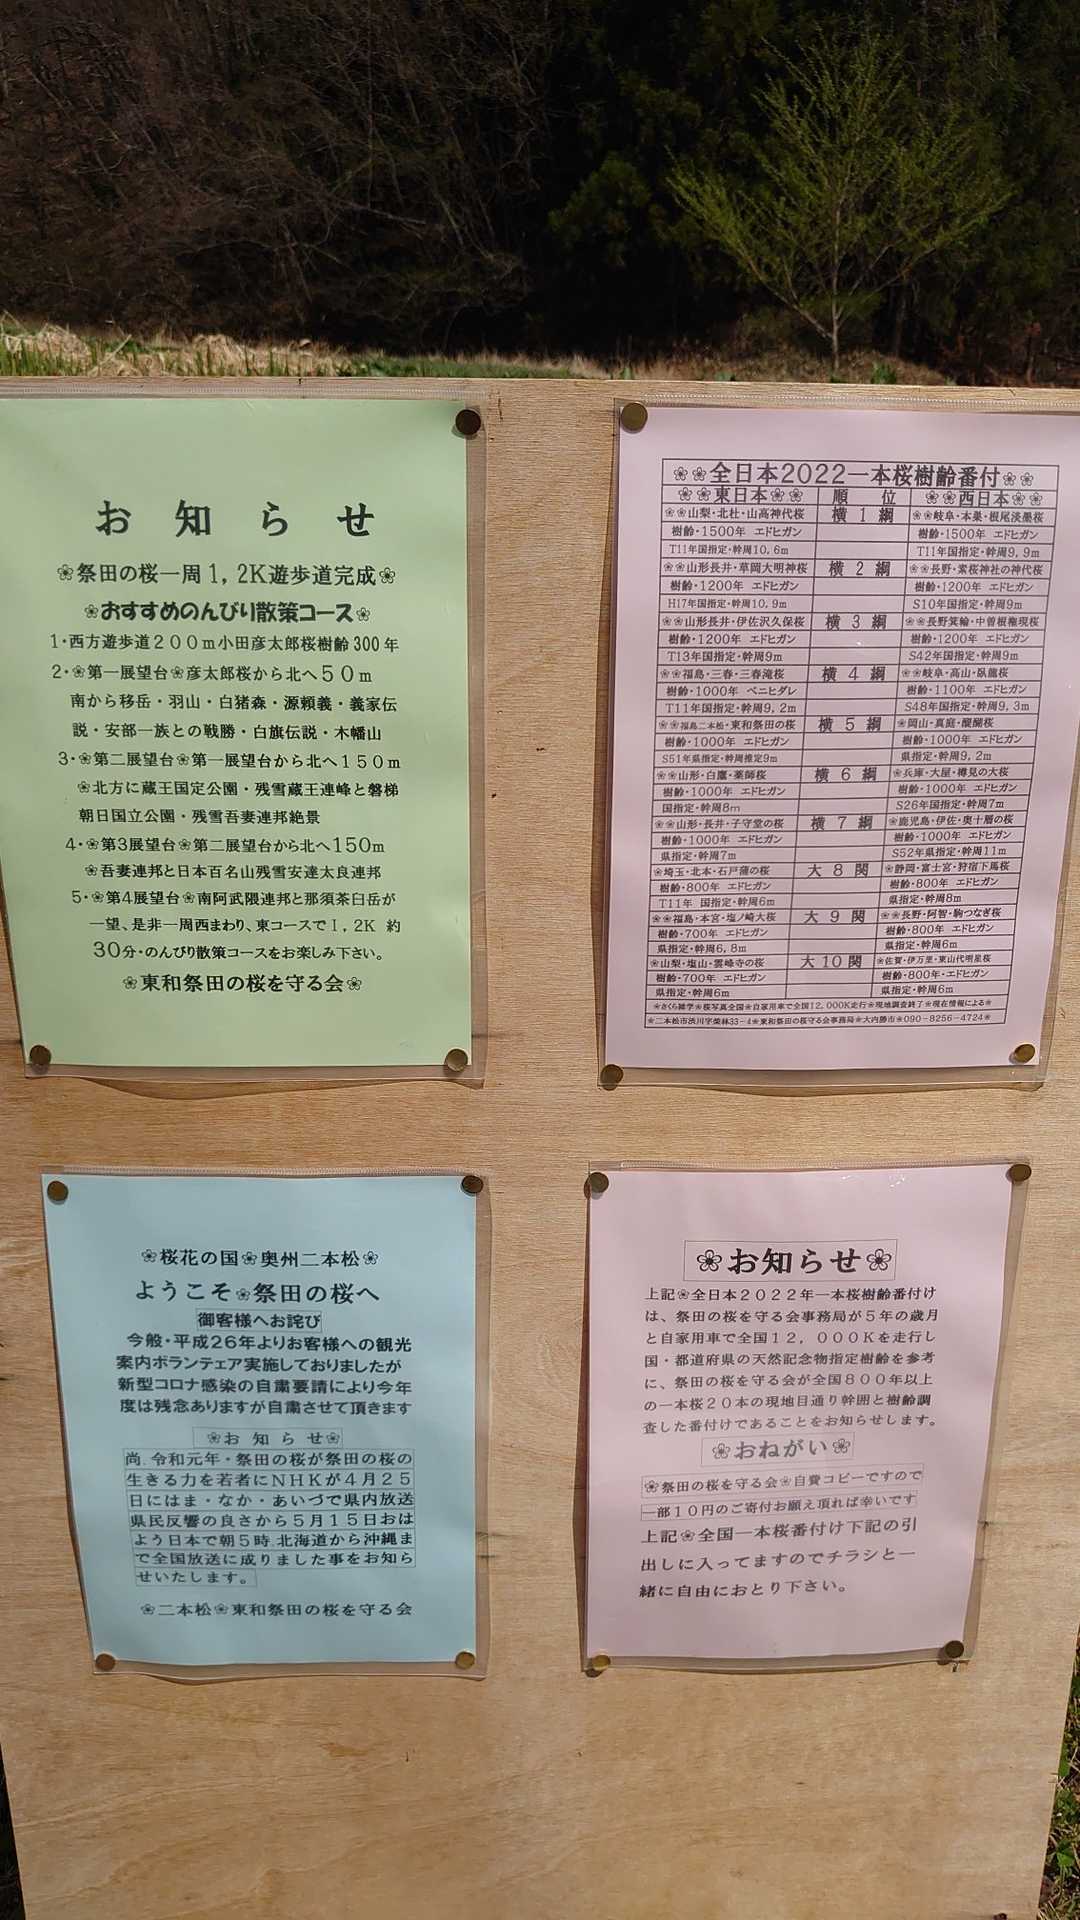 お知らせ
❀祭田の桜一周1,2K遊歩道完成❀
❀おすすめのんびり散策コース❀
1・西方遊歩道200m小田彦太郎桜樹齢300年
2・❀第一展望台❀彦太郎桜から北へ50m
南から移岳・羽山・白猪森・源頼義・義家伝
説・安部一族との戦勝・白旗伝説・木幡山
3・❀第二展望台❀第一展望台から北へ150m
❀北方に蔵王国定公園・残雪蔵王連峰と磐梯
朝日国立公園・残雪吾妻連邦絶景
4・❀第3展望台❀第二展望台から北へ150m
❀吾妻連邦と日本百名山残雪安達太良連邦
5・❀第4展望台❀南阿武隈連邦と那須茶臼岳が
一望、是非一周西まわり、東コースで1,2K 約
30分・のんびり散策コースをお楽しみ下さい。
❀東和祭田の桜を守る会❀
❀❀全日本2022一本桜樹齢番付❀❀
❀❀東日本❀❀ 順位 ❀❀西日本❀❀
❀❀山梨・北杜・山高神代桜 横1綱 ❀❀岐阜・本巣・根尾淡墨桜
樹齢・1500年 エドヒガン 樹齢・1500年 エドヒガン
T11年国指定・幹周10,6m T11年国指定・幹周9,9m
❀❀山形長井・草岡大明神桜 横2綱 ❀❀長野・素桜神社の神代桜
樹齢・1200年 エドヒガン 樹齢・1200年 エドヒガン
H17年国指定・幹周10,9m S10年国指定・幹周9m
❀❀山形長井・伊佐沢久保桜 横3綱 ❀❀長野箕輪・中曽根権現桜
樹齢・1200年 エドヒガン 樹齢・1200年 エドヒガン
T13年国指定・幹周9m S42年国指定・幹周9m
❀❀福島・三春・三春滝桜 横4綱 ❀❀岐阜・高山・臥龍桜
樹齢・1000年 ベニヒダレ 樹齢・1100年 エドヒガン
T11年国指定・幹周9,2m S48年国指定・幹周9,3m
❀❀福島二本松・東和祭田の桜 横5綱 ❀岡山・真庭・醍醐桜
樹齢・1000年 エドヒガン 樹齢・1000年 エドヒガン
S51年県指定・幹周推定9m 県指定・幹周9,2m
❀❀山形・白鷹・薬師桜 横6綱 ❀兵庫・大屋・樽見の大桜
樹齢・1000年 エドヒガン 樹齢・1000年 エドヒガン
国指定・幹周8m S26年国指定・幹周7m
❀❀山形・長井・子守堂の桜 横7綱 ❀鹿児島・伊佐・奥十曽の桜
樹齢・1000年 エドヒガン 樹齢・1000年 エドヒガン
県指定・幹周7m S52年県指定・幹周11m
❀埼玉・北本・石戸蒲の桜 大8関 ❀静岡・富士宮・狩宿下馬桜
樹齢・800年 エドヒガン 樹齢・800年 エドヒガン
T11年 国指定・幹周6m 県指定・幹周8m
❀❀福島・本宮・塩ノ崎大桜 大9関 ❀❀長野・阿智・駒つなぎ桜
樹齢・700年 エドヒガン 樹齢・800年 エドヒガン
県指定・幹周6,8m 県指定・幹周6m
❀山梨・塩山・雲峰寺の桜 大10関 ❀佐賀・伊万里・東山代明星桜
樹齢・700年 エドヒガン 樹齢・800年・エドヒガン
県指定・幹周6m 県指定・幹周6m
❀さくら雑学❀桜写真全国❀自家用車で全国12,000K走行❀現地調査終了❀現在情報による❀
❀二本松市渋川字榮林33-4❀東和祭田の桜守る会事務局❀大内勝市❀090-8256-4724❀
❀桜花の国❀奥州二本松❀
ようこそ❀祭田の桜へ
御客様へお詫び
今般・平成26年よりお客様への観光
案内ボランテェア実施しておりましたが
新型コロナ感染の自粛要請により今年
度は残念ありますが自粛させて頂きます
❀お知らせ❀
尚.令和元年・祭田の桜が祭田の桜の
生きる力を若者にNHKが4月25
日にはま・なか・あいづで県内放送
県民反響の良さから5月15日おは
よう日本で朝5時.北海道から沖縄ま
で全国放送に成りました事をお知ら
せいたします。
❀二本松❀東和祭田の桜を守る会
❀お知らせ❀
上記❀全日本2022年一本桜樹齢番付け
は、祭田の桜を守る会事務局が5年の歳月
と自家用車で全国12,000Kを走行し
国・都道府県の天然記念物指定樹齢を参考
に、祭田の桜を守る会が全国800年以上
の一本桜20本の現地目通り幹囲と樹齢調
査した番付けであることをお知らせします。
❀おねがい❀
❀祭田の桜を守る会❀自費コピーですので
一部10円のご寄付お願え頂れば幸いです
上記❀全国一本桜番付け下記の引
出しに入ってますのでチラシと一
緒に自由におとり下さい。